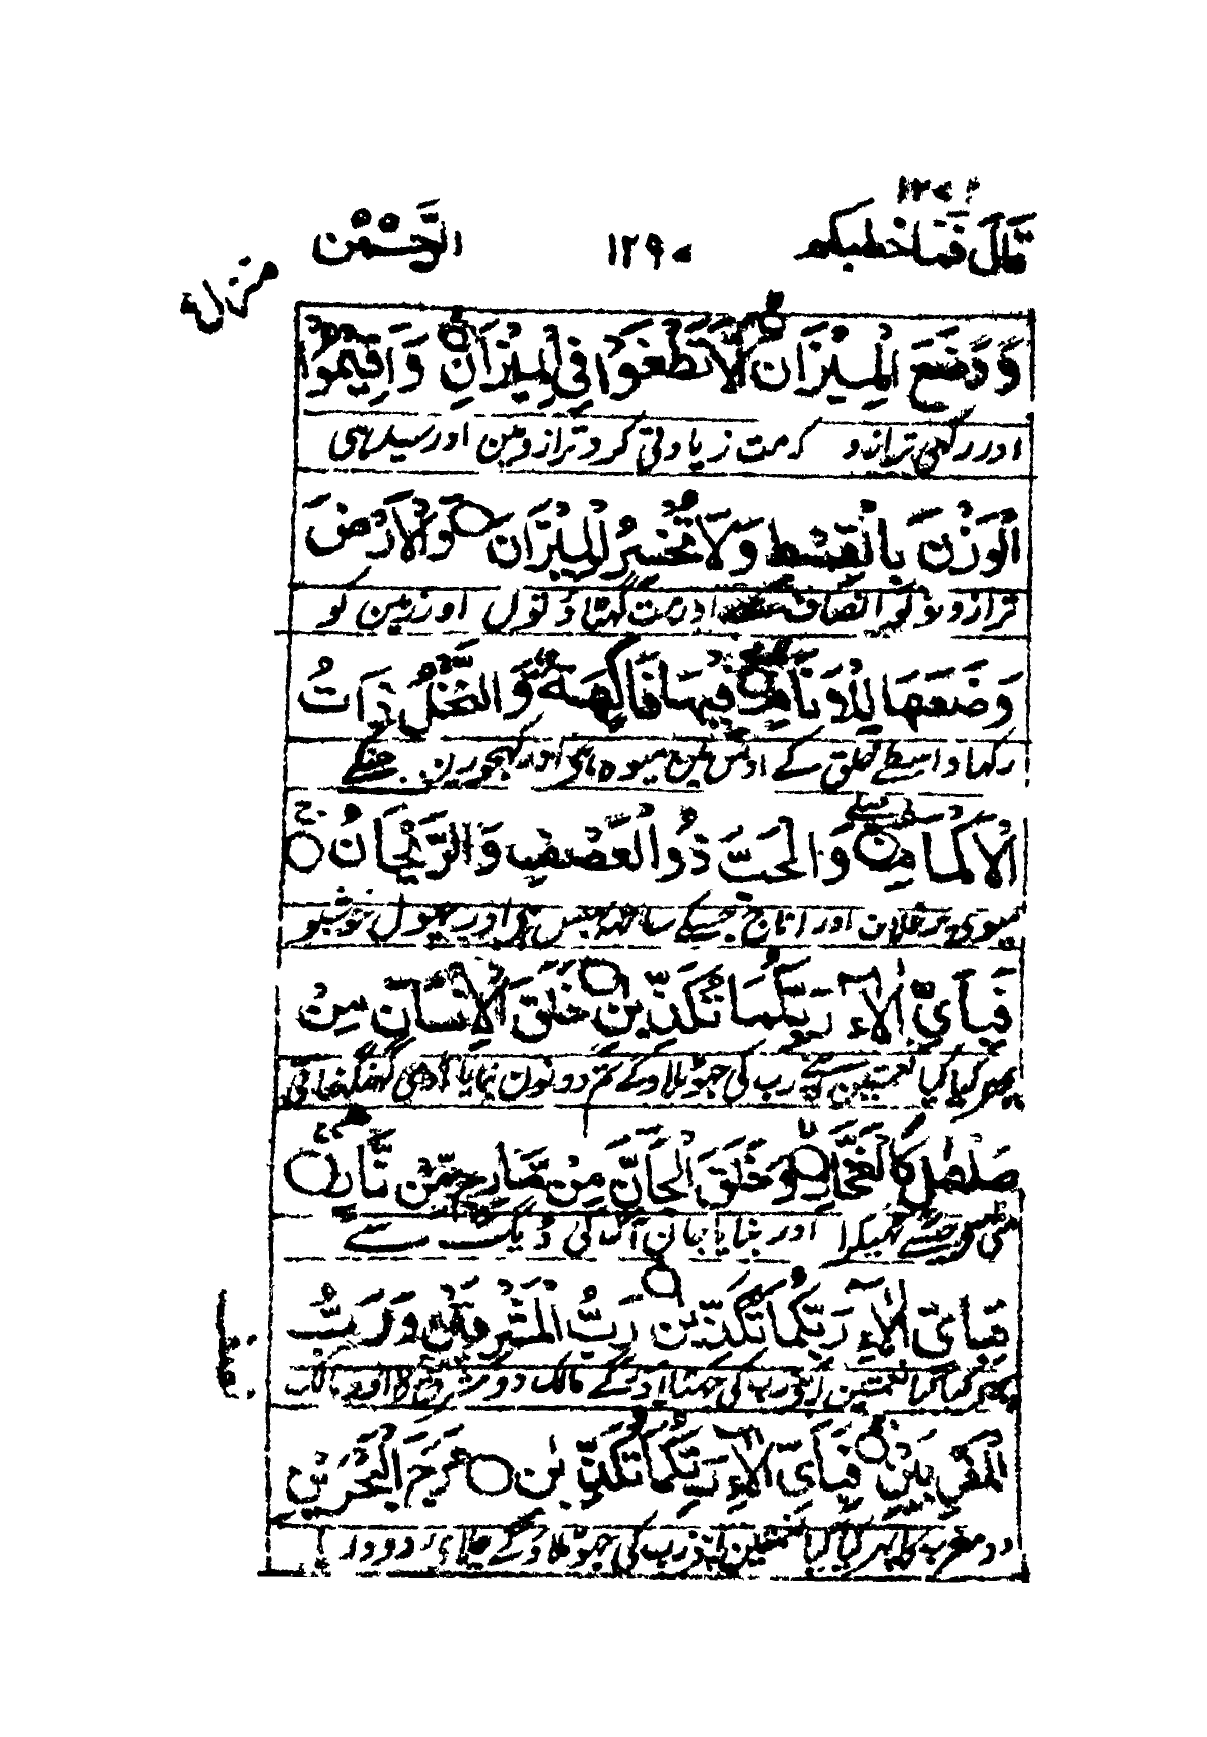 قَالَ فَمَا خَطْبُكُمْ ١٢٩٠ الرَّحْمٰن
منزل
وَوَضَعَ الْمِيْزَانَ اَلَّا تَطْغَوْا فِي الْمِيْزَانِ وَاَقِيْمُوا
اور رکھی ترازو کہ مت زیادتی کرو ترازو مین اور سیدہی
الْوَزْنَ بِالْقِسْطِ وَلَا تُخْسِرُوا الْمِيْزَانَ وَالْاَرْضَ
ترازو تولو انصاف اور مت گہٹاؤ تول اور زمین کو
وَضَعَهَا لِلْاَنَامِ فِيْهَا فَاكِهَةٌ وَّالنَّخْلُ ذَاتُ
رکہا واسطے خلق کے اوس مین میوہ ہی اور کہجورین جنکے
الْاَكْمَامِ وَالْحَبُّ ذُو الْعَصْفِ وَالرَّيْحَانُ
میوی پر غلاف اور اناج جسکے ساتھ بہس ہی اور پہول خوشبو
فَبِاَيِّ اٰلَآءِ رَبِّكُمَا تُكَذِّبٰنِ خَلَقَ الْاِنْسَانَ مِنْ
پہر کیا کیا نعمتین اپنے رب کی جہوٹلاوگے تم دونون بنایا آدمی کہنکہناتی
صَلْصَالٍ كَالْفَخَّارِ وَخَلَقَ الْجَانَّ مِنْ مَّارِجٍ مِّنْ نَّارٍ
مٹی سے جیسے ٹہیکرا اور بنایا جان آگ کی ڈیک سے
فَبِاَيِّ اٰلَآءِ رَبِّكُمَا تُكَذِّبٰنِ رَبُّ الْمَشْرِقَيْنِ وَرَبُّ
پہر کیا کیا نعمتین اپنے رب کی جہٹلاؤگے مالک دو مشرق کا اور مالک
الْمَغْرِبَيْنِ فَبِاَيِّ اٰلَآءِ رَبِّكُمَا تُكَذِّبٰنِ مَرَجَ الْبَحْرَيْنِ
دو مغرب کا پہر کیا کیا نعمتین اپنے رب کی جہوٹلاؤگے چلائے دو